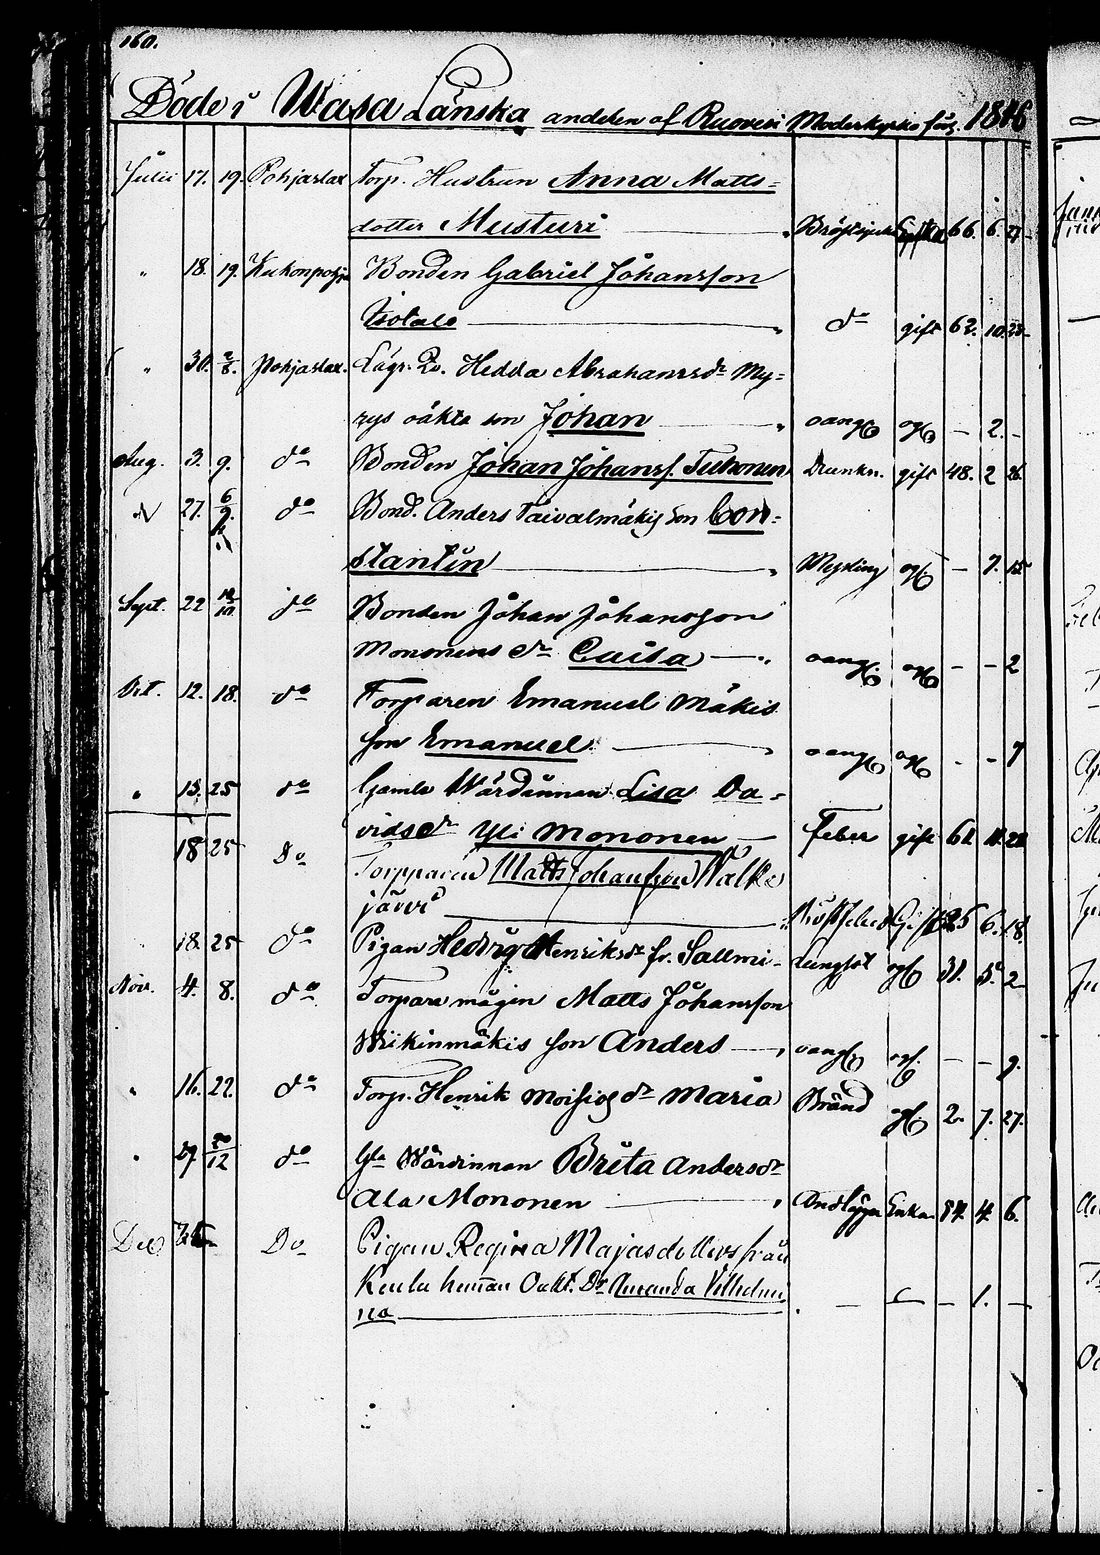 160.
Döde i Wasa Länska andelen af Ruovesi Moderkyrko förs. 1846
Julii 17. 19. Pohjaslax Torp. Hustrun Anna Matts=
dotter Musturi Bröstsjuk Gift 66. 6. 27
" 18. 19. Kukonpohja Bonden Gabriel Johansson
Isotalo do gift 62. 10. 23
" 30. 2/8. Pohjaslax. Lägr. Qv. Hedda Abrahamsdr My=
rys oäkta son Johan oang og - 2. -
Aug. 3. 9. do Bonden Johan Johanss. Tuhonen Drunkn. gift 48. 2 26
27. 6/9. do Bond. Anders Taivalmäkis son Con=
stantin Messling og. - 7. 15
Sept. 22 do Bonden Johan Johansson
Monomens dr Caisa oang. og - - 2
Oct. 12. 18. do Torparen Emanuel Mäkis
son Emanuel oang og - - 7
" 13. 25 do Gamla Wärdinnan Lisa Da=
vidsdr Yli Mononen Feber gift 61 11. 22
18 25 Do Torpparen Matts Johansson Walke
järvi Gift 6. 18
18. 25 do Pigan Hedvig Henriksdr fr. Sallmi- Lungsot og 31. 5. 2
Nov. 4. 8. do Torpare mågen Matts Johansson
Wiikinmäkis son Anders oang og. - - 9.
" 16. 22. do Torp. Henrik Moisios dr Maria Bränd og. 2. 7. 27.
" 29 20/12 do Gla Wärdinnan Brita Andersdr
Ala Mononen Enka 84. 4. 6.
Dec Do Pigan Regina Majasdotters från
Keulu heman Oäkt. Dr Amanda Vilhelmi
na - - - 1. -